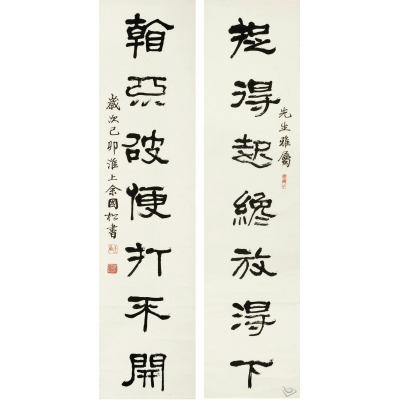 提得起纔放得下
先生雅屬
看不破便打不開
歲次己卯淮上余國松書